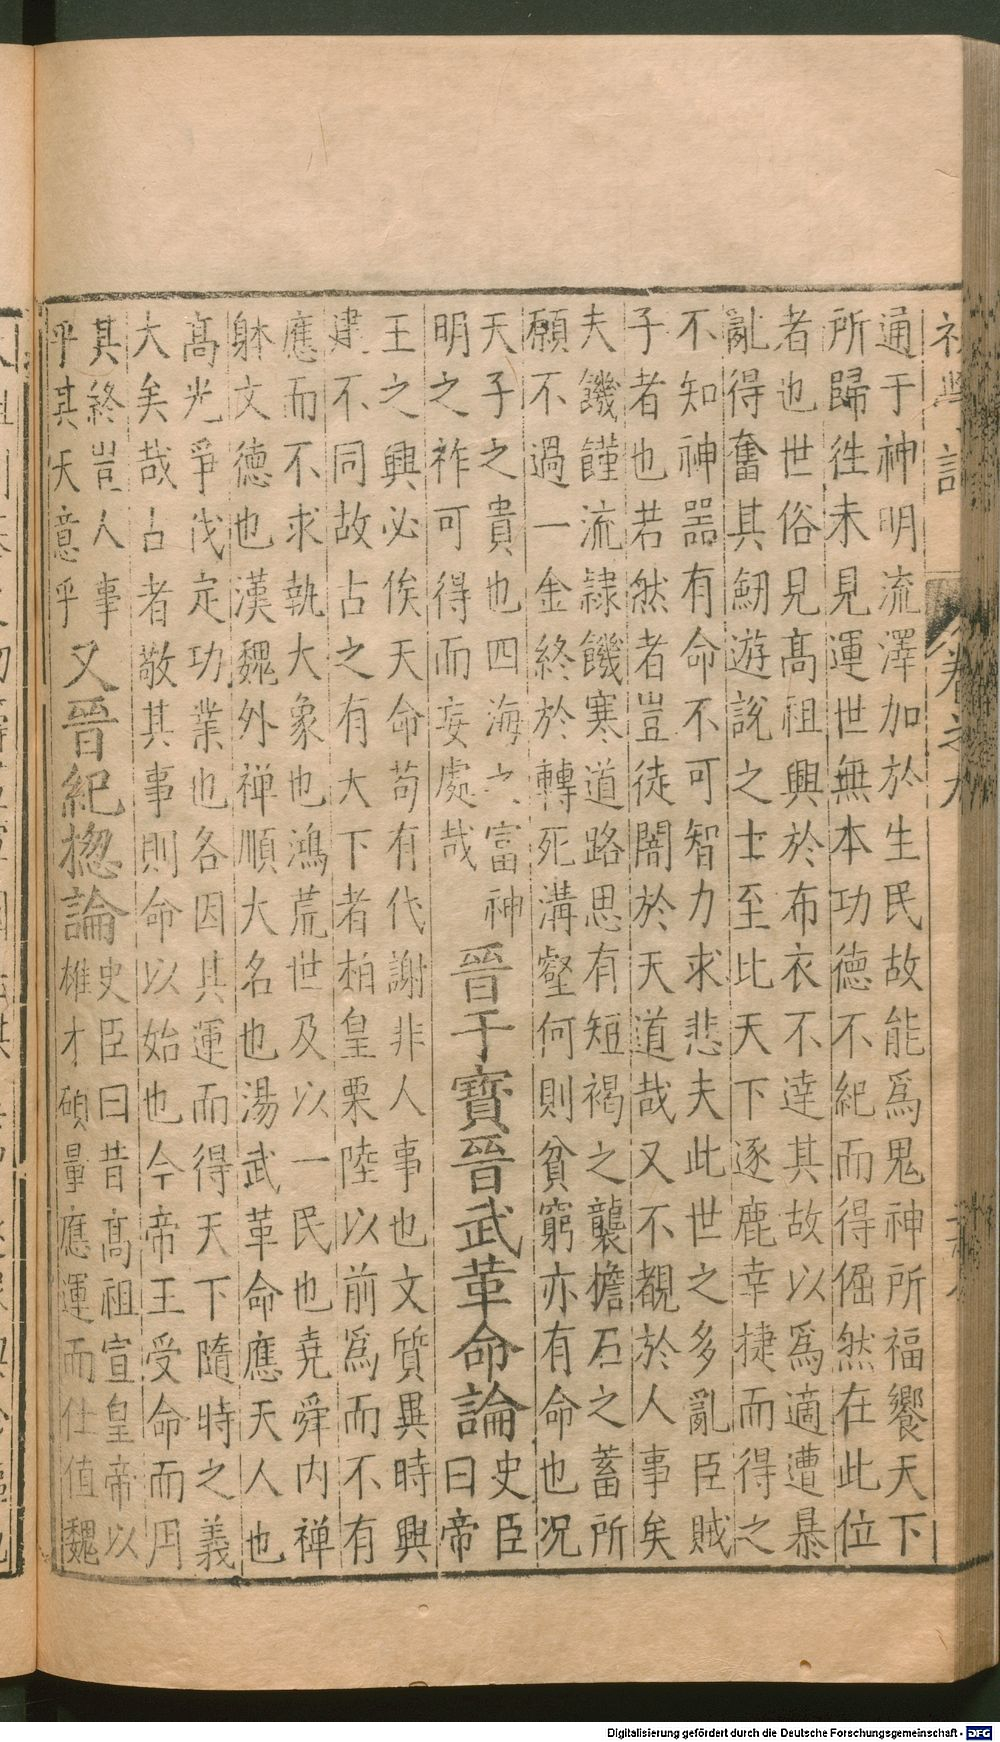 通于神明流澤加於生民故能爲鬼神所福饗天下
所歸徃未見運世無本功德不紀而得倔然在此位
者也世俗見髙祖興於布衣不達其故以爲適遭暴
亂得奮其劒遊說之士至比天下逐鹿幸捷而得之
不知神器有命不可智力求悲夫此世之多亂臣賊
子者也若然者豈徒闇於天道哉又不覩於人事矣
夫饑饉流隷饑寒道路思有短褐之襲擔石之蓄所
願不過一金終於轉死溝壑何則貧窮亦有命也况
天子之貴也四海之富神
明之祚可得而妄處哉
晉干寳晉武革命論
史臣
曰帝
王之興必俟天命苟有代謝非人事也文質異時興
建不同故古之有大下者柏皇栗陸以前爲而不有
應而不求執大象也鴻荒世及以一民也堯舜内禅
躰文德也漢魏外禅順大名也湯武革命應天人也
髙光爭伐定功業也各因其運而得天下隨時之義
大矣哉古者敬其事則命以始也今帝王受命而用
其終豈人事
乎其天意乎
又晉紀揔論
史臣曰昔髙祖宣皇帝以
雄才碩量應運而仕值魏
卷之九
Digitalisierung gefördert durch die Deutsche Forschungsgemeinschaft - DFG